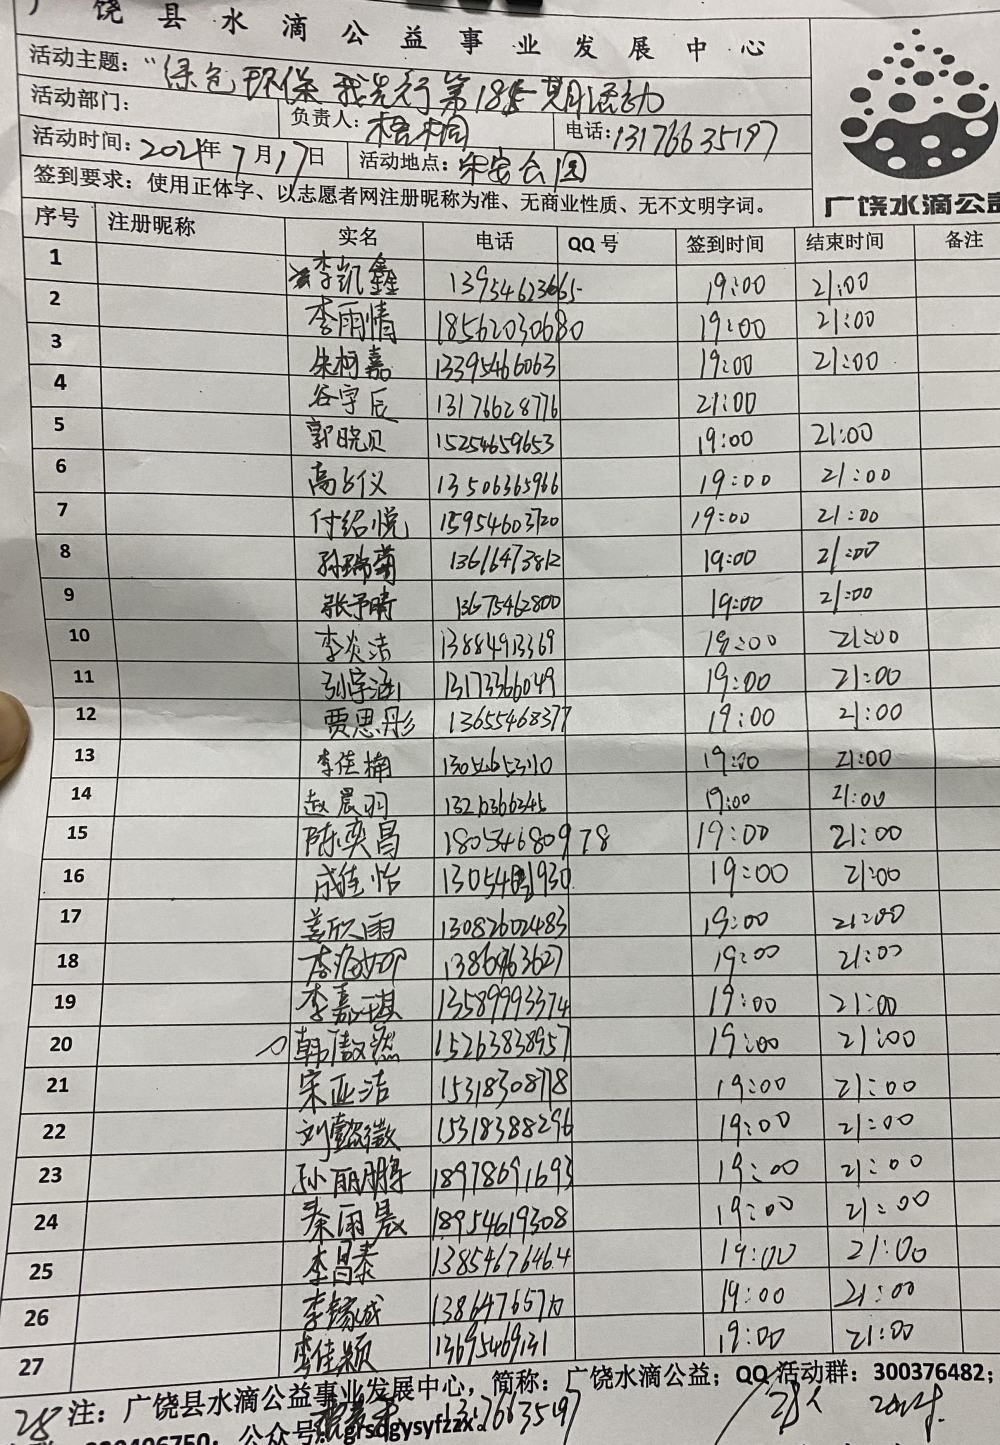 广饶县水滴公益事业发展中心
活动主题：“绿色环保 我先行第185期活动
活动部门： 负责人：梧桐 电话：13176635197
活动时间：2021年7月17日 活动地点：乐安公园
签到要求：使用正体字、以志愿者网注册昵称为准、无商业性质、无不文明字词。
广饶水滴公益
序号 注册昵称 实名 电话 QQ号 签到时间 结束时间 备注
1 李凯鑫 13954623665 19:00 21:00
2 李雨情 18562030680 19:00 21:00
3 朱柯嘉 13395466063 19:00 21:00
4 谷宇辰 13176628776 21:00
5 郭晓贝 15254659653 19:00 21:00
6 高占仪 13506365966 19:00 21:00
7 付绍悦 15954603720 19:00 21:00
8 孙瑞菊 13616473812 19:00 21:00
9 张予晴 13675462800 19:00 21:00
10 李炎洁 13884913369 19:00 21:00
11 张宇涵 13173366049 19:00 21:00
12 贾思彤 13655468377 19:00 21:00
13 李佳楠 19:00 21:00
14 赵晨羽 19:00 21:00
15 陈奕昌 18054680978 19:00 21:00
16 成佳怡 19:00 21:00
17 姜欣雨 13082602483 19:00 21:00
18 19:00 21:00
19 李嘉琪 13589993374 19:00 21:00
20 韩傲然 15263838957 19:00 21:00
21 宋亚洁 15318308718 19:00 21:00
22 刘懿徵 15318388296 19:00 21:00
23 孙丽鹏 18978691693 19:00 21:00
24 秦雨晨 18954619308 19:00 21:00
25 李昌泰 13854676464 19:00 21:00
26 19:00 21:00
27 李佳颖 13695469131 19:00 21:00
注：广饶县水滴公益事业发展中心，简称：广饶水滴公益；QQ 活动群：300376482；
28 公众号：grsdgysyfzzx。 13176635197 28人